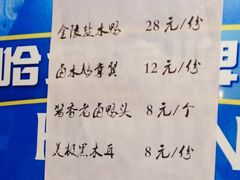 金陵盐水鸭 28元/份
卤水鸭胃翼 12元/份
酱香老卤鸭头 8元/个
美极黑木耳 8元/份
哈